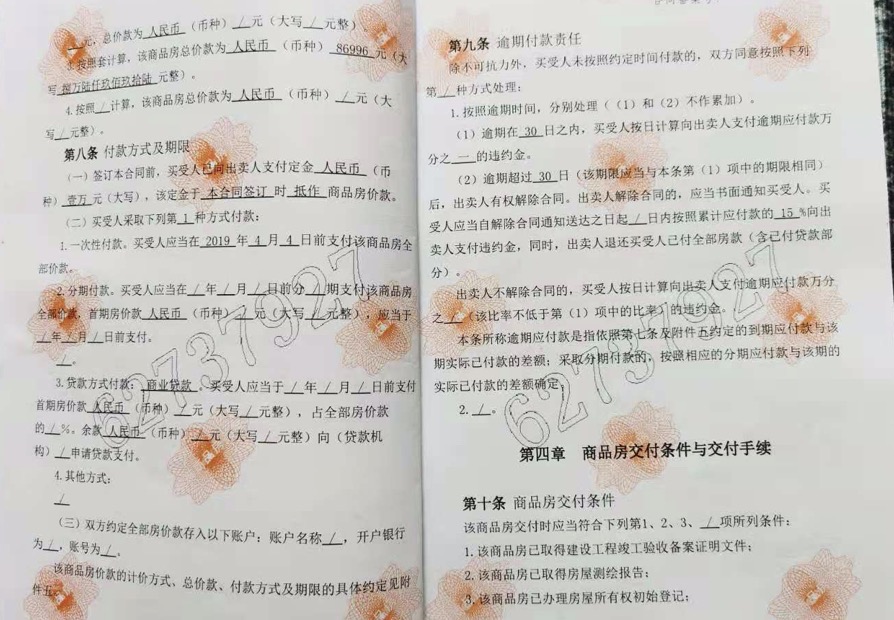 /元，总价款为 人民币 （币种）/元（大写/元整）
3.按照套计算，该商品房总价款为 人民币 （币种） 86996 元（大
写 捌万陆仟玖佰玖拾陆 元整）。
4.按照/计算，该商品房总价款为 人民币 （币种）/元（大
写/元整）。
第八条 付款方式及期限
（一）签订本合同前，买受人已向出卖人支付定金 人民币 （币
种） 壹万 元（大写），该定金于 本合同签订 时 抵作 商品房价款。
（二）买受人采取下列第 1 种方式付款：
1.一次性付款。买受人应当在 2019 年 4 月 4 日前支付该商品房全
部价款。
2.分期付款。买受人应当在/年/月/日前分/期支付该商品房
全部价款，首期房价款 人民币 （币种）/元（大写/元整），应当于
/年/月/日前支付。
/。
3.贷款方式付款： 商业贷款 。买受人应当于/年/月/日前支付
首期房价款 人民币 （币种）/元（大写/元整），占全部房价款
的/%。余款 人民币 （币种）/元（大写/元整）向（贷款机
构）/申请贷款支付。
4.其他方式：
/
（三）双方约定全部房价款存入以下账户：账户名称/，开户银行
为/，账号为/。
该商品房价款的计价方式、总价款、付款方式及期限的具体约定见附
件五。
62737927
第九条 逾期付款责任
除不可抗力外，买受人未按照约定时间付款的，双方同意按照下列
第/种方式处理：
1.按照逾期时间，分别处理（（1）和（2）不作累加）。
（1）逾期在 30 日之内，买受人按日计算向出卖人支付逾期应付款万
分之 一 的违约金。
（2）逾期超过 30 日（该期限应当与本条第（1）项中的期限相同）
后，出卖人有权解除合同。出卖人解除合同的，应当书面通知买受人。买
受人应当自解除合同通知送达之日起/日内按照累计应付款的 15 %向出
卖人支付违约金，同时，出卖人退还买受人已付全部房款（含已付贷款部
分）。
出卖人不解除合同的，买受人按日计算向出卖人支付逾期应付款万分
之/（该比率不低于第（1）项中的比率）的违约金。
本条所称逾期应付款是指依照第七条及附件五约定的到期应付款与该
期实际已付款的差额；采取分期付款的，按照相应的分期应付款与该期的
实际已付款的差额确定。
2./。
62737927
第四章 商品房交付条件与交付手续
第十条 商品房交付条件
该商品房交付时应当符合下列第1、2、3、/项所列条件：
1.该商品房已取得建设工程竣工验收备案证明文件；
2.该商品房已取得房屋测绘报告；
3.该商品房已办理房屋所有权初始登记；